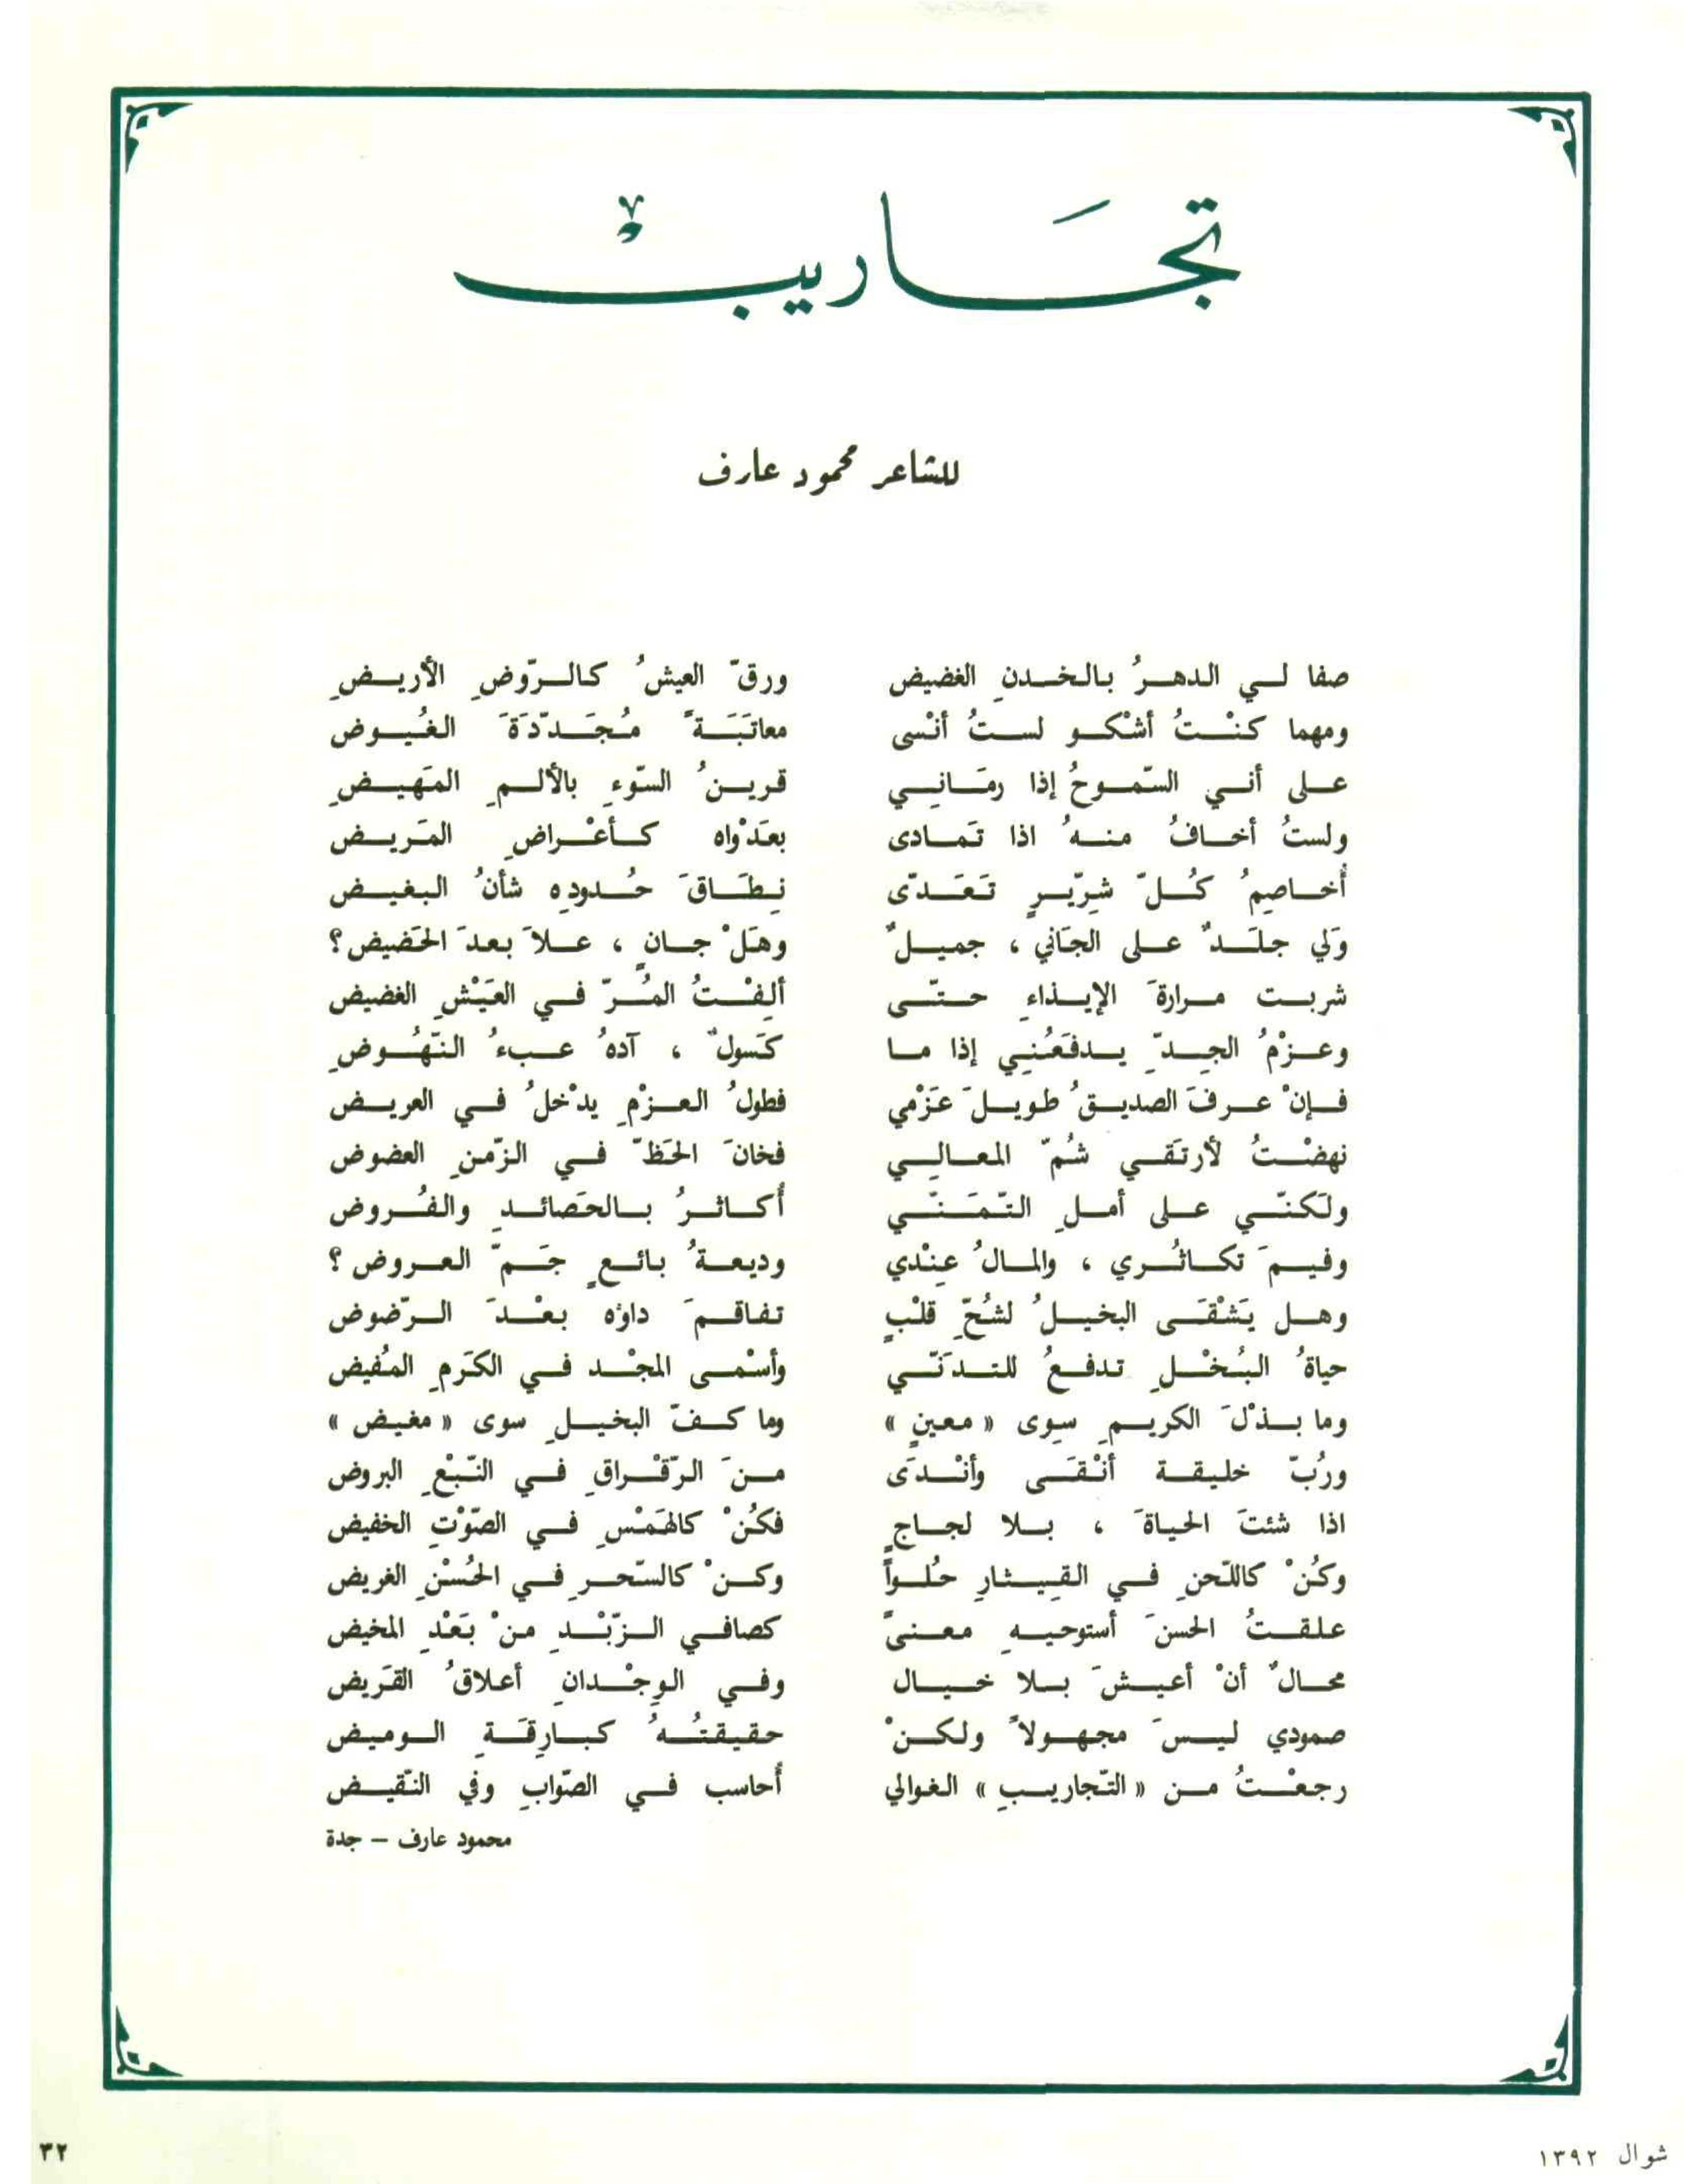 تجَاريبْ
للشاعر محمود عارف
صفا لي الدهرُ بالخدنِ الغضيض ورقّ العيشُ كالرّوضِ الأريضِ
ومهما كنْتُ أشْكو لستُ أنْسى معاتَبَةً مُجَدّدَةَ الغُيوض
على أني السّموحُ إذا رمَاني قرينُ السّوءِ بالألمِ المَهيضِ
ولستُ أخافُ منهُ اذا تَمادى بعَدْواه كأعْراضِ المَريض
أخاصِمُ كُلّ شرِيّرٍ تَعَدّى نِطَاقَ حُدودِه شأنُ البغيض
وَلي جلَدٌ على الجَاني ، جميلٌ وهَلْ جانٍ ، علاَ بعدَ الحَضيض؟
شربت مرارةَ الإيذاءِ حتّى ألِفْتُ المُرّ في العَيْشِ الغضيض
وعزْمُ الجِدّ يدفَعُني إذا ما كَسولٌ ، آدهُ عبءُ النّهُوضِ
فإنْ عرفَ الصديقُ طويلَ عَزْمي فطولُ العزْمِ يدْخلُ في العريض
نهضْتُ لأرتَقي شُمّ المعالي فخانَ الحَظّ في الزّمنِ العضوض
ولَكنّي على أملِ التّمَنّي أكاثرُ بالحَصائدِ والفُروض
وفيمَ تكاثُري ، والمالُ عِنْدي وديعةُ بائعٍ جَمّ العروض ؟
وهل يَشْقَى البخيلُ لشُحّ قلْبٍ تفاقمَ داؤه بعْدَ الرّضوض
حياةُ البُخْلِ تدفعُ للتدَنّي وأسْمى المجْد في الكَرَمِ المُفيض
وما بذْلَ الكريمِ سِوى « معينٍ » وما كفّ البخيلِ سوى « مغيض »
ورُبّ خليقة أنْقَى وأنْدَى منَ الرّقْراقِ في النّبْعِ البروض
اذا شئتَ الحياةَ ، بلا لجاجٍ فكُنْ كالهَمْسِ في الصّوْتِ الخفيض
وكُنْ كاللّحنِ في القِيثارِ حُلواً وكنْ كالسّحرِ في الحُسْنِ الغريض
علقتُ الحسنَ أستوحيهِ معنىً كصافي الزّبْدِ منْ بَعْدِ المخيض
محالٌ أنْ أعيشَ بلا خيال وفي الوِجْدانِ أعلاقُ القَريض
صمودي ليسَ مجهولاً ولكنْ حقيقتُهُ كبارِقَةِ الوميض
رجعْتُ من « التّجاريبِ » الغوالي أحاسب في الصّوابِ وفي النّقيض
محمود عارف – جدة
شوال ١٣٩٢
٣٢